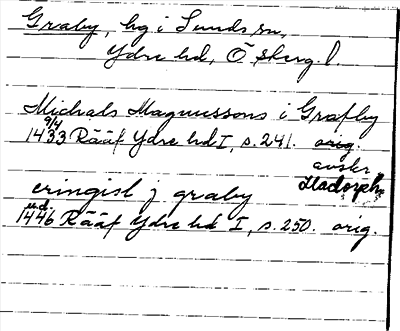 Graby, hg i Sunds sn,
Ydre hd, Ö skrgl.
Michals Magnussons i Grafby
9/4
1433 Rääf Ydre hd I, s. 241. orig.
avskr
Hadorph
eringisl j graby
u.d.
1446 Rääf Ydre hd I, s. 250. orig.